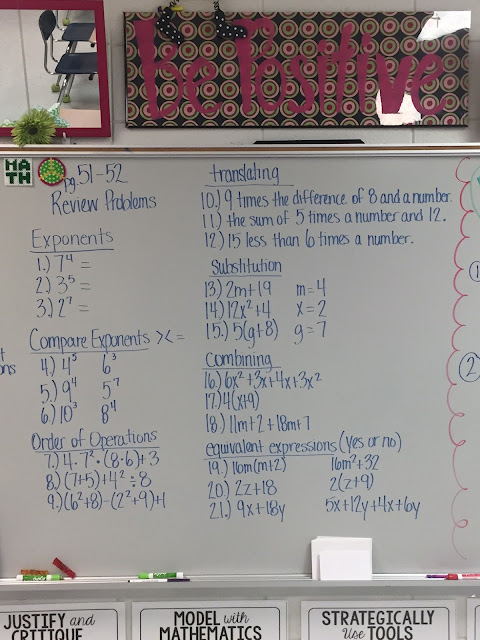 Be Positive
MA
TH
pg. 51-52
Review Problems
Exponents
1.) 7⁴ =
2.) 3⁵ =
3.) 2⁷ =
Compare Exponents >< =
4.) 4⁵ 6³
5.) 9⁴ 5⁷
6.) 10³ 8⁴
Order of Operations
7.) 4·7²·(8-6)+3
8.) (7+5)+4²÷8
9.) (6²+8)-(2²+9)+1
translating
10.) 9 times the difference of 8 and a number.
11.) the sum of 5 times a number and 12.
12.) 15 less than 6 times a number.
Substitution
13.) 2m+19 m=4
14.) 12x²+4 x=2
15.) 5(g+8) g=7
Combining
16.) 6x²+3x+4x+3x²
17.) 4(x+9)
18.) 11m+2+18m+7
equivalent expressions (yes or no)
19.) 16m(m+2) 16m²+32
20.) 2z+18 2(z+9)
21.) 9x+18y 5x+12y+4x+6y
ons
1
2
JUSTIFY and
CRITIQUE
MODEL with
MATHEMATICS
STRATEGICALLY
Use TOOLS